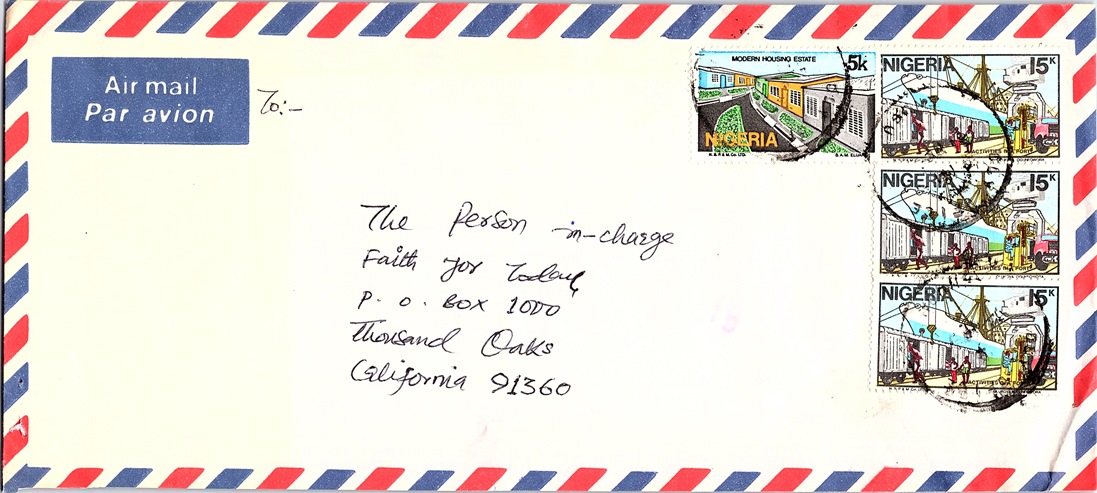 Air mail
Par avion
To:-
MODERN HOUSING ESTATE
5k
NIGERIA
N.S.P. & M. Co. LTD.
NIGERIA 15K
ACTIVITIES IN A PORT
NIGERIA 15K
ACTIVITIES IN A PORT
NIGERIA 15K
ACTIVITIES IN A PORT
The Person in-charge
Faith for Today
P. O. Box 1000
Thousand Oaks
California 91360